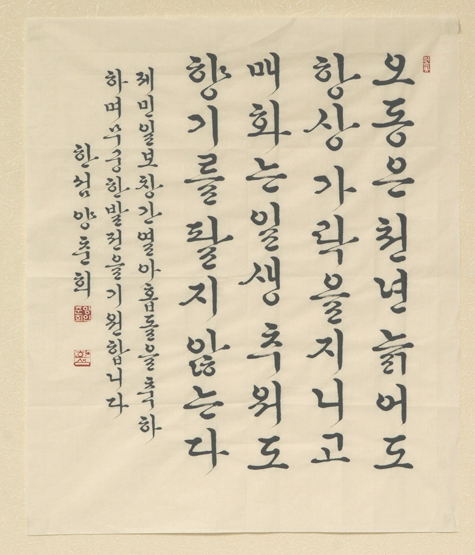 오동은천년늙어도
항상가락을지니고
매화는일생추위도
향기를팔지않는다
제민일보창간열아홉돌을축하
하며무궁한발전을기원합니다
한섬양춘희